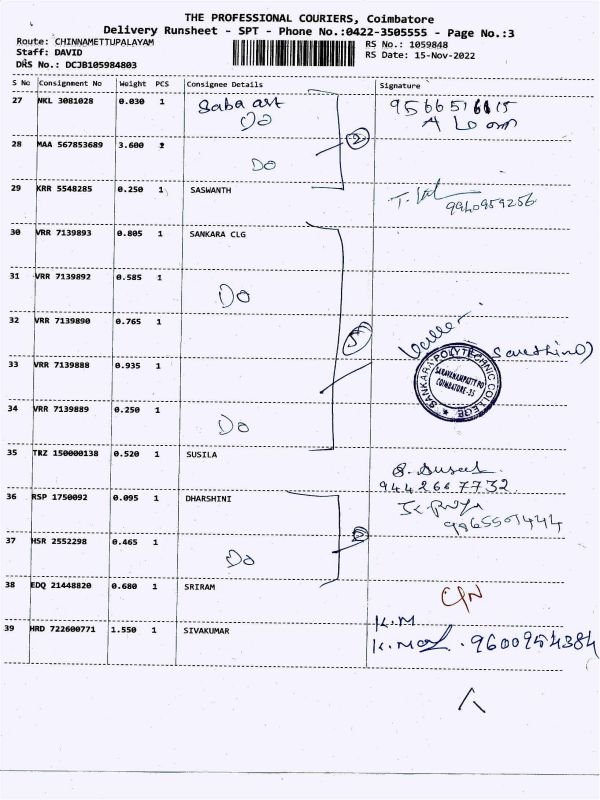 THE PROFESSIONAL COURIERS, Coimbatore
Delivery Runsheet - SPT - Phone No.:0422-3505555 - Page No.:3
Route: CHINNAMETTUPALAYAM
RS No.: 1059848
Staff: DAVID
RS Date: 15-Nov-2022
DRS No.: DCJB105984803
S No Consignment No Weight PCS Consignee Details Signature
27 NKL 3081028 0.030 1 Saba art
Do
28 MAA 567853689 3.600 1
Do
2
29 KRR 5548285 0.250 1 SASWANTH 9940959256
30 VRR 7139893 0.805 1 SANKARA CLG
31 VRR 7139892 0.585 1
Do
32 VRR 7139890 0.765 1
33 VRR 7139888 0.935 1
SANKARA POLYTECHNIC COLLEGE
SARAVANAMPATTY PO
COIMBATORE-35
34 VRR 7139889 0.250 1
Do
35 TRZ 150000138 0.520 1 SUSILA
9442667732
36 RSP 1750092 0.095 1 DHARSHINI
37 HSR 2552298 0.465 1
Do
38 EDQ 21448820 0.680 1 SRIRAM
K.M
39 HRD 722600771 1.550 1 SIVAKUMAR 9600954384